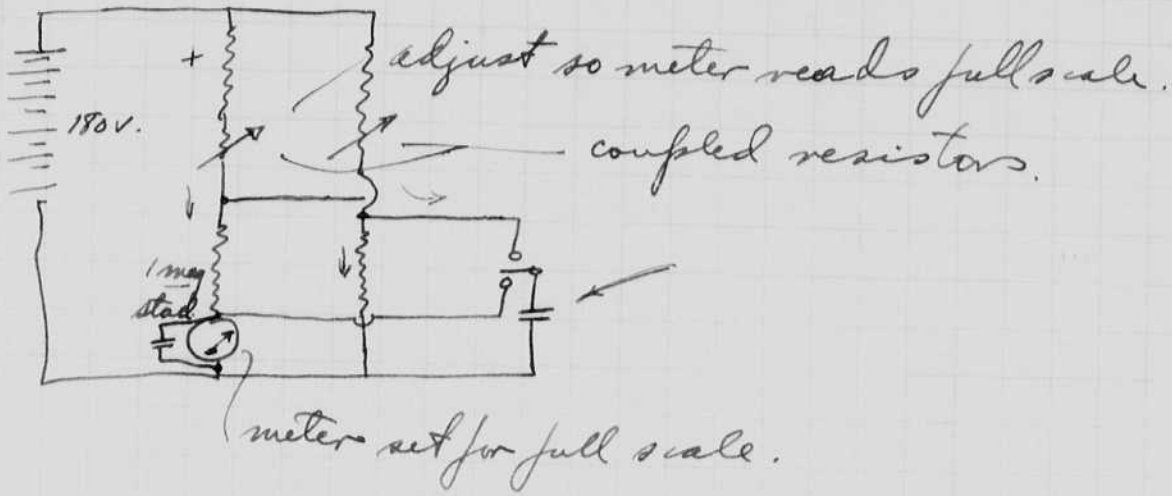 +
adjust so meter reads full scale.
180 V.
coupled resistors.
1 meg
stad
meter set for full scale.